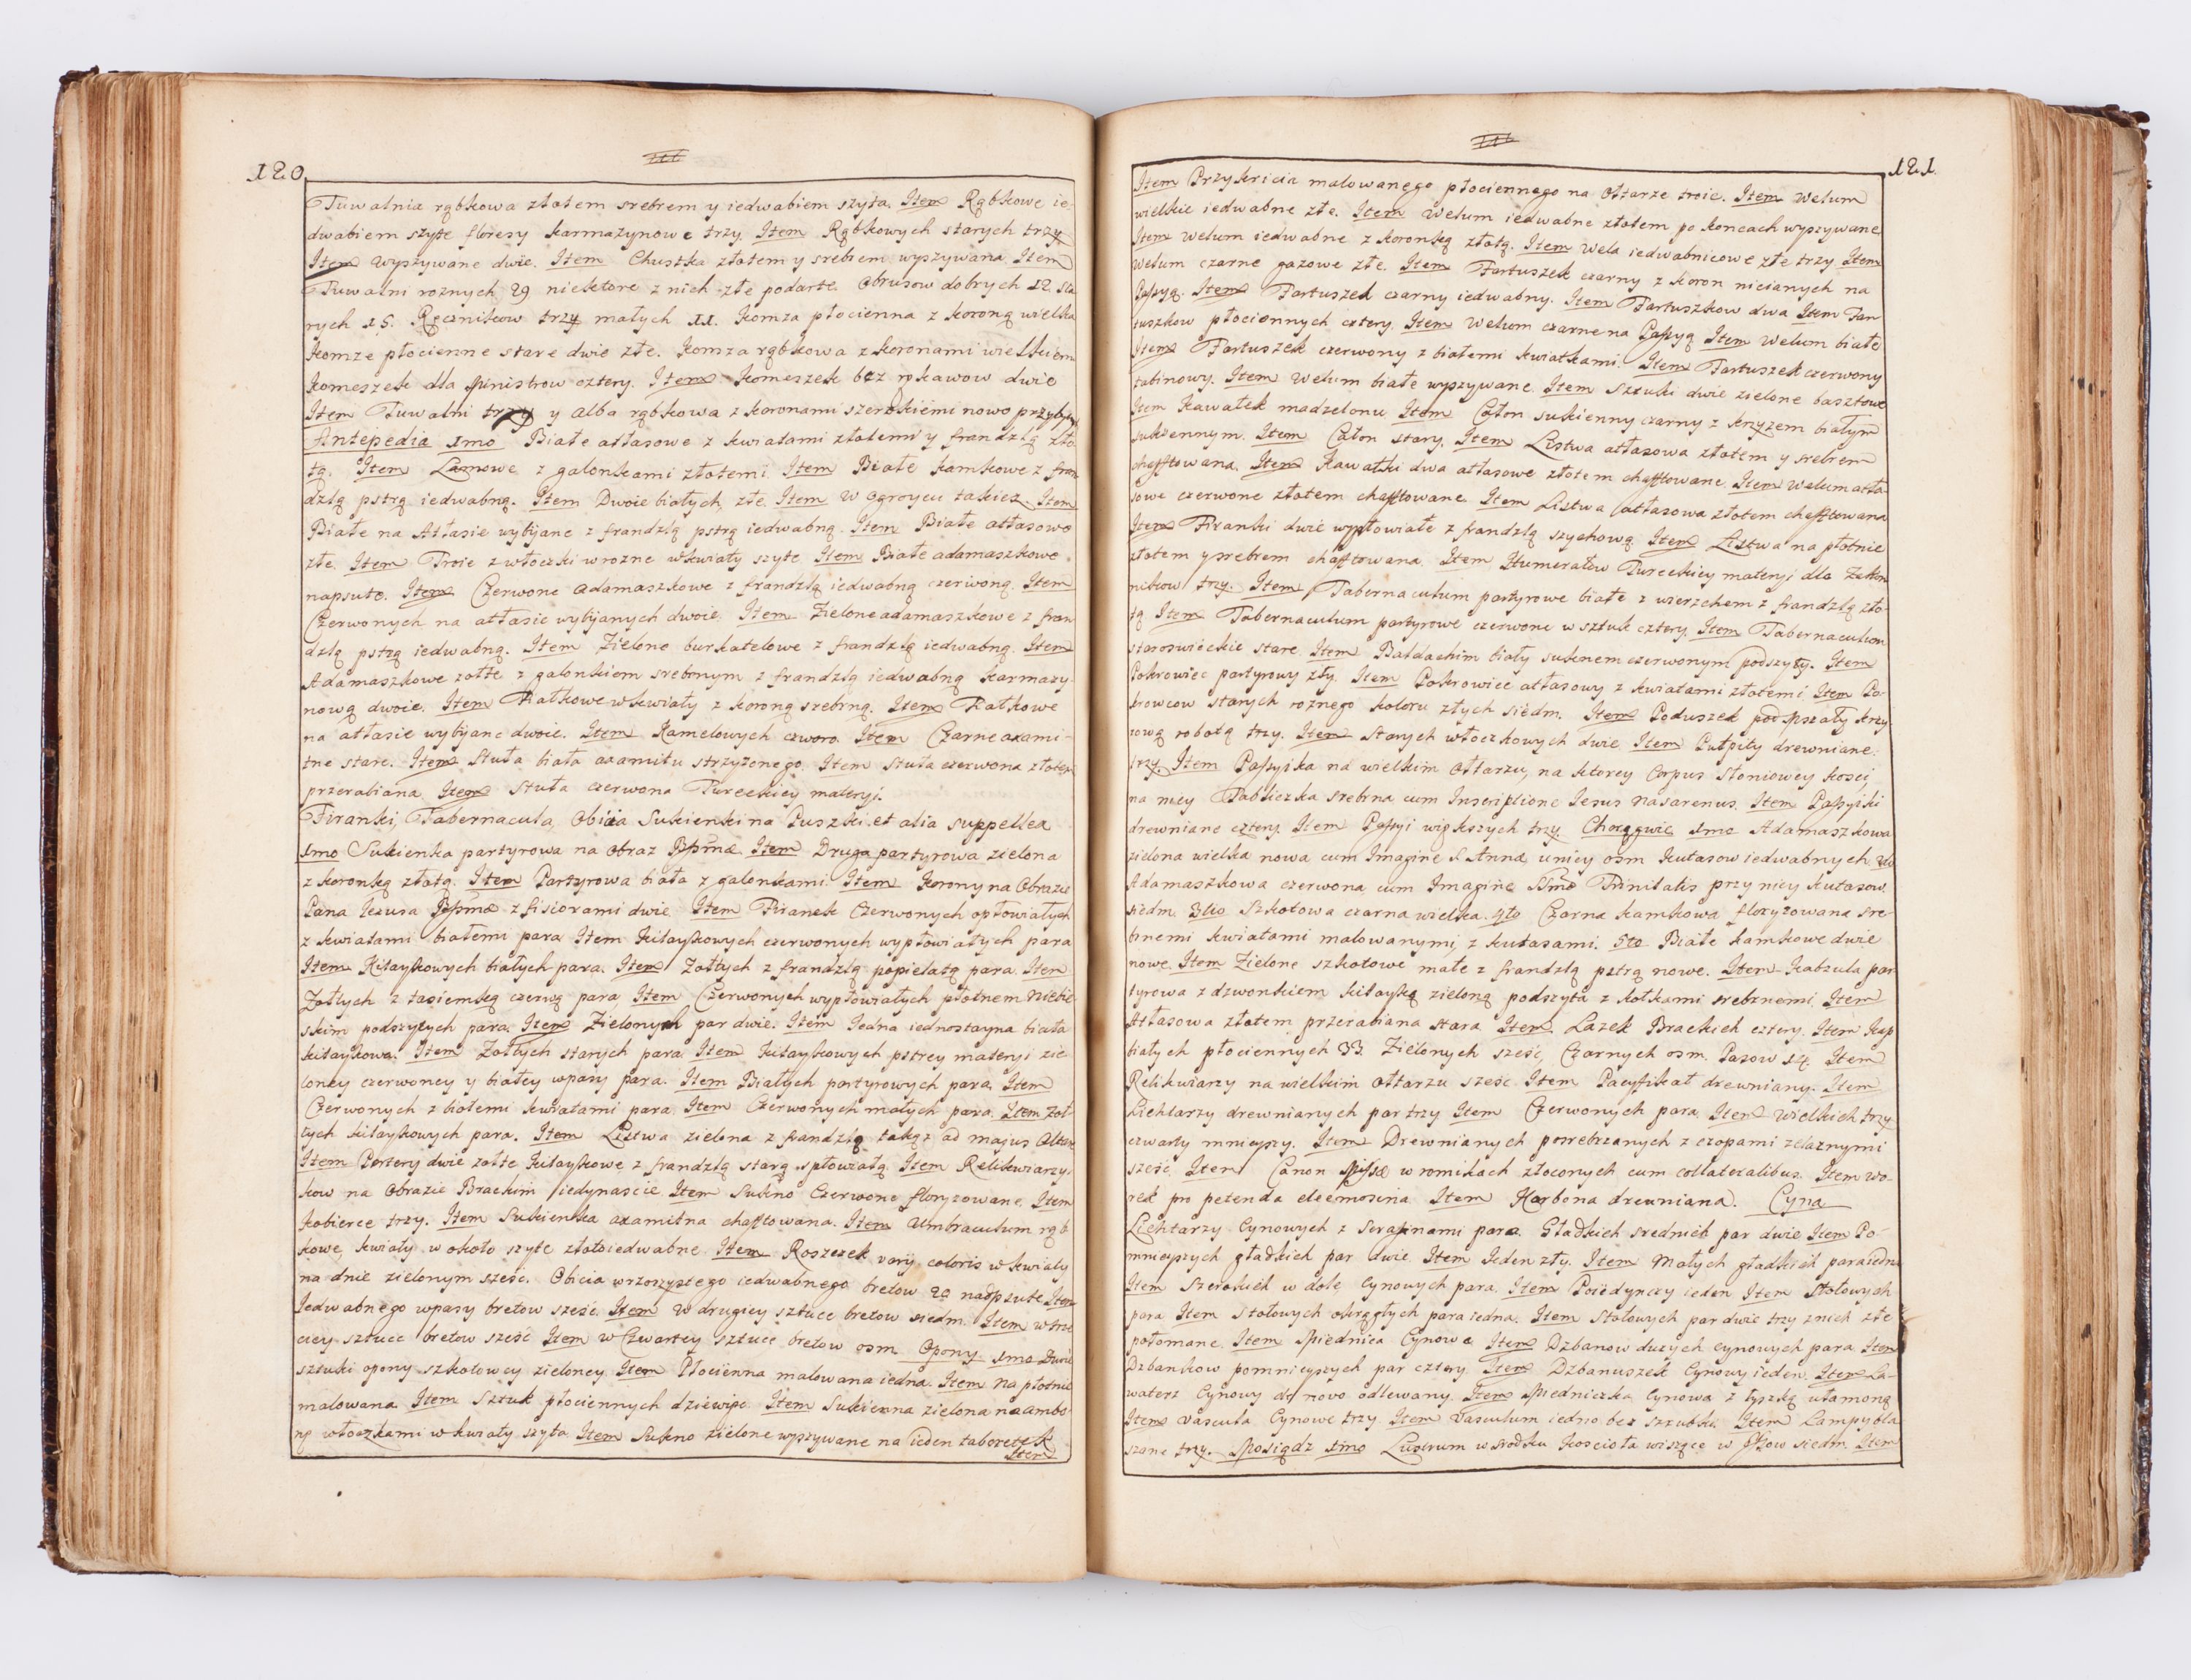 120
Tuwalnia rąbkowa złotem srebrem y iedwabiem szyta. Item Rąbkowe ie
dwabiem szyte floresy karmazynowe trzy. Item Rąbkowych starych trzy
Item wyszywane dwie. Item Chustka złotem y srebrem wyszywana Item
Tuwalni roznych 29 niektore z nich złe podarte. Obrusow dobrych 12 sta
rych 15. Ręcznikow trzy małych 11. Komza płocienna z koroną wielka
Komze płocienne stare dwie złe. Komza rąbkowa z koronami wielkiem
Komeszek dla Ministrow cztery. Item Komeszek bez rękawow dwie
Item Tuwalni trzy y Alba rąbkowa z koronami szerokiemi nowo przybyły
Antepedia 1mo Białe atłasowe z kwiatami złotemi y frandzlą zło
tą. Item Lamowe z galonkami złotemi. Item Białe kamkowe z fran
dzlą pstrą iedwabną. Item Dwoie białych, złe. Item w Ogroycu takież. Item
Białe na Atłasie wybijane z frandzlą pstrą iedwabną. Item Białe atłasowo
złe. Item Troie z włoczki wrozne wkwiaty szyte Item Białe adamaszkowe
napsute. Item Czerwone adamaszkowe z frandzlą iedwabną czerwoną. Item
Czerwonych na atłasie wybijanych dwoie. Item Zielone adamaszkowe z fran
dzlą pstrą iedwabną. Item Zielone burkatelowe z frandzlą iedwabną. Item
Adamaszkowe żołte z galonkiem srebrnym z frandzlą iedwabną karmazy
nową dwoie. Item Fiałkowe wkwiaty z koroną srebrną. Item Fiałkowe
na atłasie wybijane dwoie. Item Kamelowych czworo Item Czarne axami-
tne stare. Item Stuła biała axamitu strzyżonego. Item Stuła czerwona złotem
przerabiana Item Stuła czerwona Tureckiey materyi.
Firanki, Tabernacula, Obicia Sukienki na Puszki et alia suppellex
1mo Sukienka partyrowa na Obraz Item Druga partyrowa zielona
z koronką złotą. Item Partyrowa biała z galonkami Item Korony na Obrazie
Pana Jezusa z fisiorami dwie Item Firanek Czerwonych opłowiałych
z kwiatami białemi para Item Kitaykowych czerwonych wypłowiałych para
Item Kitaykowych białych para. Item Zołtych z frandzlą popielatą para. Item
Zołtych z tasiemką czerwą para Item Czerwonych wypłowiałych płotnem Niebie
skim podszytych para. Item Zielonych par dwie. Item Jedna iednostayna biała
kitaykowa. Item Zołtych starych para Item Kitaykowych pstrey materyi zie
loney czerwoney y białey wpasy para. Item Białych partyrowych para. Item
Czerwonych z białemi kwiatami para Item Czerwonych małych para. Item Zoł
tych kitaykowych para. Item Listwa zielona z frandzlą takąż ad majus Altare
Item Portery dwie żołte Kitaykowe z frandzlą starą spłowiałą. Item Relikwiarzy
kow na Obrazie Brackim iedynaście Item Sukno Czerwone floryzowane. Item
Kobierce trzy. Item Sukienka axamitna chafftowana. Item Umbraculum rąb
kowe, kwiaty w około szyte złotoiedwabne Item Roszczek varij coloris w kwiaty
na dnie zielonym sześć. Obicia wzorzystego iedwabnego bretow 29 nadpsute Item
Iedwabnego wpasy bretow sześć. Item w drugiey sztuce bretow siedm. Item w trze
ciey sztuce bretow sześć Item w Czwartey sztuce bretow osm Opony 1mo Dwie
sztuki opony szkotowey zieloney. Item Płocienna malowana iedna. Item na płotnie
malowana Item Sztuk płociennych dziewięc. Item Sukienna zielona na ambo
nę włoczkami w kwiaty szyta Item Sukno zielone wyszywane na ieden taboretek
Item
121.
Item Przykricia malowanego płociennego na Ołtarze troie. Item Welum
wielkie iedwabne złe. Item Welum iedwabne złotem po koncach wyszywane
Item Welum iedwabne z koronką złotą. Item Wela iedwabnicowe złe trzy Item
Welum czarne gazowe złe. Item Fartuszek czarny z koron nicianych na
Passyą. Item Fartuszek czarny iedwabny. Item Fartuszkow dwa Item Far
tuszkow płociennych cztery. Item Welum czarne na Passyą Item Welum białe
Item Fartuszek czerwony z białemi kwiatkami. Item Fartuszek czerwony
tabinowy. Item Welum białe wyszywane. Item Sztuki dwie zielone basztowe
Item Kawałek madzelonu Item Całon sukienny czarny z krzyżem białym
sukiennym. Item Całon stary. Item Listwa atłasowa złotem y srebrem
chafftowana. Item Kawałki dwa atłasowe złotem chafftowane. Item Welum atła-
sowe czerwone złotem chafftowane Item Listwa atłasowa złotem chafftowana
Item Firanki dwie wypłowiałe z frandzlą szychową. Item Listwa na płotnie
złotem y srebrem chafftowana. Item Humerałow Tureckiey materyi dla Zakon
nikow trzy. Item Tabernaculum partyrowe białe z wierzchem z frandzlą zło-
tą Item Tabernaculum partyrowe czerwone w sztuk cztery. Item Tabernaculum
staroswieckie stare Item Baldachim biały suknem czerwonym podszyty. Item
Pokrowiec partyrowy zły. Item Pokrowiec atłasowy z kwiatami złotemi Item Po-
krowcow starych roznego koloru złych siedm. Item Poduszek pod Mszały krzy
zową robotą trzy. Item Starych włoczkowych dwie Item Pulpity drewniane
trzy. Item Passyika na wielkim Ołtarzu, na ktorey Corpus Słoniowey kosci,
na niey Tabliczka srebrna cum Inscriptione Iesus Nasarenus. Item Passyiki
drewniane cztery. Item Passyi większych trzy. Chorągwie 1mo Adamaszkowa
zielona wielka nowa cum Imagine S. Anna, uniey osm kutasow iedwabnych. 2do
Adamaszkowa czerwona cum Imagine SSmæ Trinitatis przy niey kutasow
siedm. 3tio Szkotowa czarna wielka. 4to Czarna kamkowa floryzowana sre-
brnemi kwiatami malowanymi, z kutasami. 5to Białe kamkowe dwie
nowe. Item Zielone szkotowe małe z frandzlą pstrą nowe. Item Kabzula par
tyrowa z dzwonkiem kitayką zieloną podszyta z kołkami srebrnemi Item
Atłasowa złotem przerabiana stara Item Lazek Brackich cztery. Item Kap
białych płociennych 33. Zielonych sześć, Czarnych osm. Pasow 14. Item
Relikwiarzy na wielkim Ołtarzu sześc. Item Pacyfikał drewniany. Item
Lichtarzy drewnianych par trzy Item Czerwonych para Item Wielkich trzy
czwarty mnieyszy. Item Drewnianych posrebrzanych z czopami żelaznymi
sześć. Item Canon Missæ w romikach złoconych cum collateralibus. Item wo-
rek pro petenda eleemosina Item Karbona drewniana. Cyna
Lichtarzy Cynowych z Serafinami para. Gładkich srednich par dwie Item Po-
mnieyszych gładkich par dwie Item Jeden zły. Item Małych gładkich para iedna
Item Szerokich w dole Cynowych para. Item Poiedynczy ieden Item Stołowych
para Item Stołowych okrągłych para iedna. Item Stołowych par dwie trzy z nich złe
połomane. Item Miednica Cynowa Item Dzbanow dużych cynowych para Item
Dzbankow pomnieyszych par cztery. Item Dzbanuszek Cynowy ieden. Item La-
waterz Cynowy de novo odlewany. Item Miedniczka Cynowa z łyszką ułamoną
Item Vascula Cynowe trzy. Item Vasculum iedno bez szrubki. Item Lampy bla
szane trzy. Mosiądz 1mo Lustrum w srodku Koscioła wiszące w siedm. Item